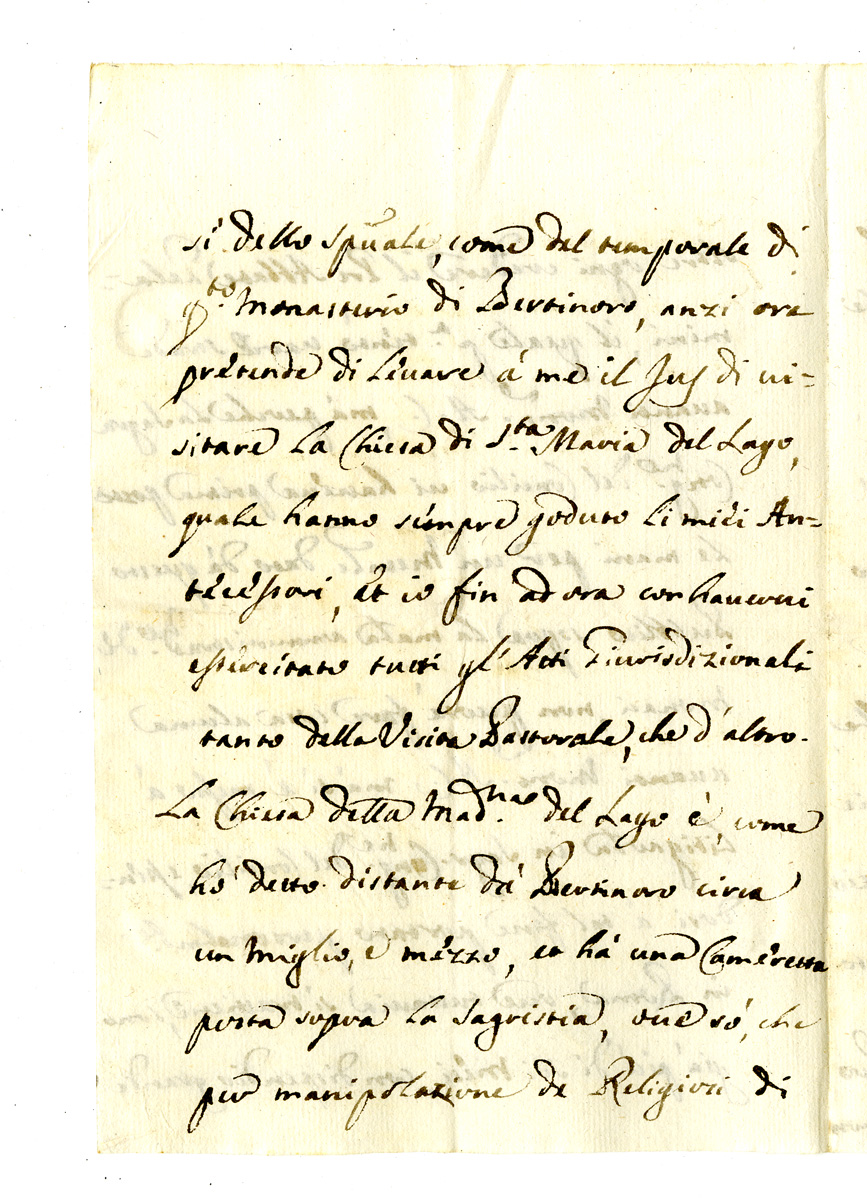 sì dello spũale, come del temporale di
q.to Monasterio di Bertinoro, anzi ora
pretende di levare à me il Jus di vi=
sitare la Chiesa di S.ta Maria del Lago,
quale hanno sempre goduto li miei An=
tecessori, et io fin ad ora con havervi
esercitato tutti gl'Atti Giurisdizionali
tanto della Visita Pastorale, che d'altro.
La Chiesa della Mad.na del Lago è, come
hò detto distante dà Bertinoro circa
un miglio, e mezzo, et hà una Cameretta
posta sopra la Sagristia, ove sò, che
per manipolazione de Religiosi di